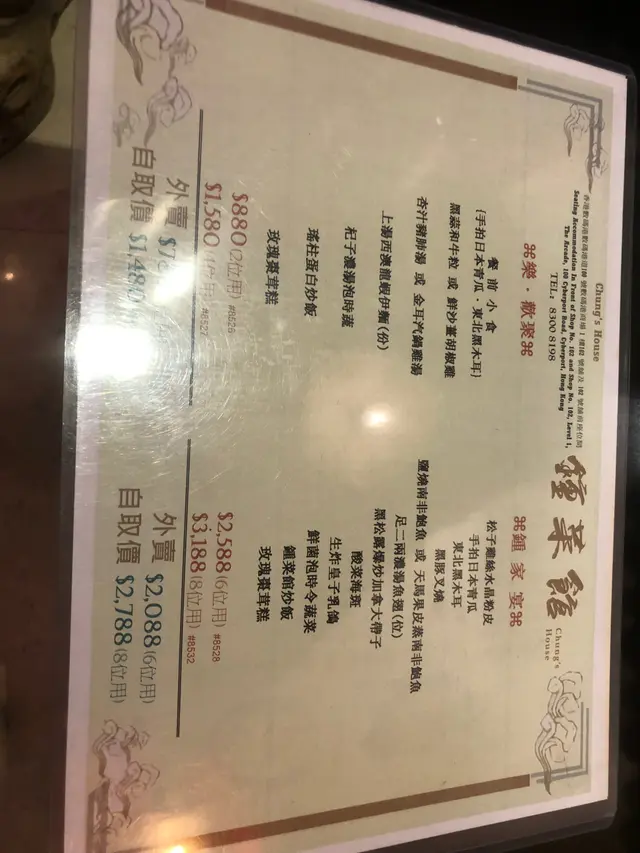 Chung's House
香港數碼港數碼港道100號數碼港商場1樓102號舖及102號舖前座位間
Seating Accommodation In Front of Shop No. 102 and Shop No. 102, Level 1,
The Arcade, 100 Cyberport Road, Cyberport, Hong Kong
TEL: 8300 8198
鍾菜館
Chung's
House
⌘樂‧歡聚⌘
餐前小食
{手拍日本青瓜‧東北黑木耳}
黑蒜和牛粒 或 鮮沙薑胡椒雞
杏汁豬肺湯 或 金耳汽鍋雞湯
上湯西澳龍蝦伊麵(份)
杞子濃湯泡時蔬
瑤柱蛋白炒飯
玫瑰棗茸糕
$880(2位用) #8526
$1,580(4位用) #8527
外賣
自取價 $1,480
⌘鍾家宴⌘
松子雞絲水晶粉皮
手拍日本青瓜
東北黑木耳
黑豚叉燒
鹽燒南非鮑魚 或 天馬果皮蒸南非鮑魚
足二兩濃湯魚翅(位)
黑松露爆炒加拿大帶子
酸菜海斑
生炸皇子乳鴿
鮮菌泡時令蔬菜
鍾菜館炒飯
玫瑰棗茸糕
$2,588(6位用) #8528
$3,188(8位用) #8532
外賣 $2,088(6位用)
自取價 $2,788(8位用)